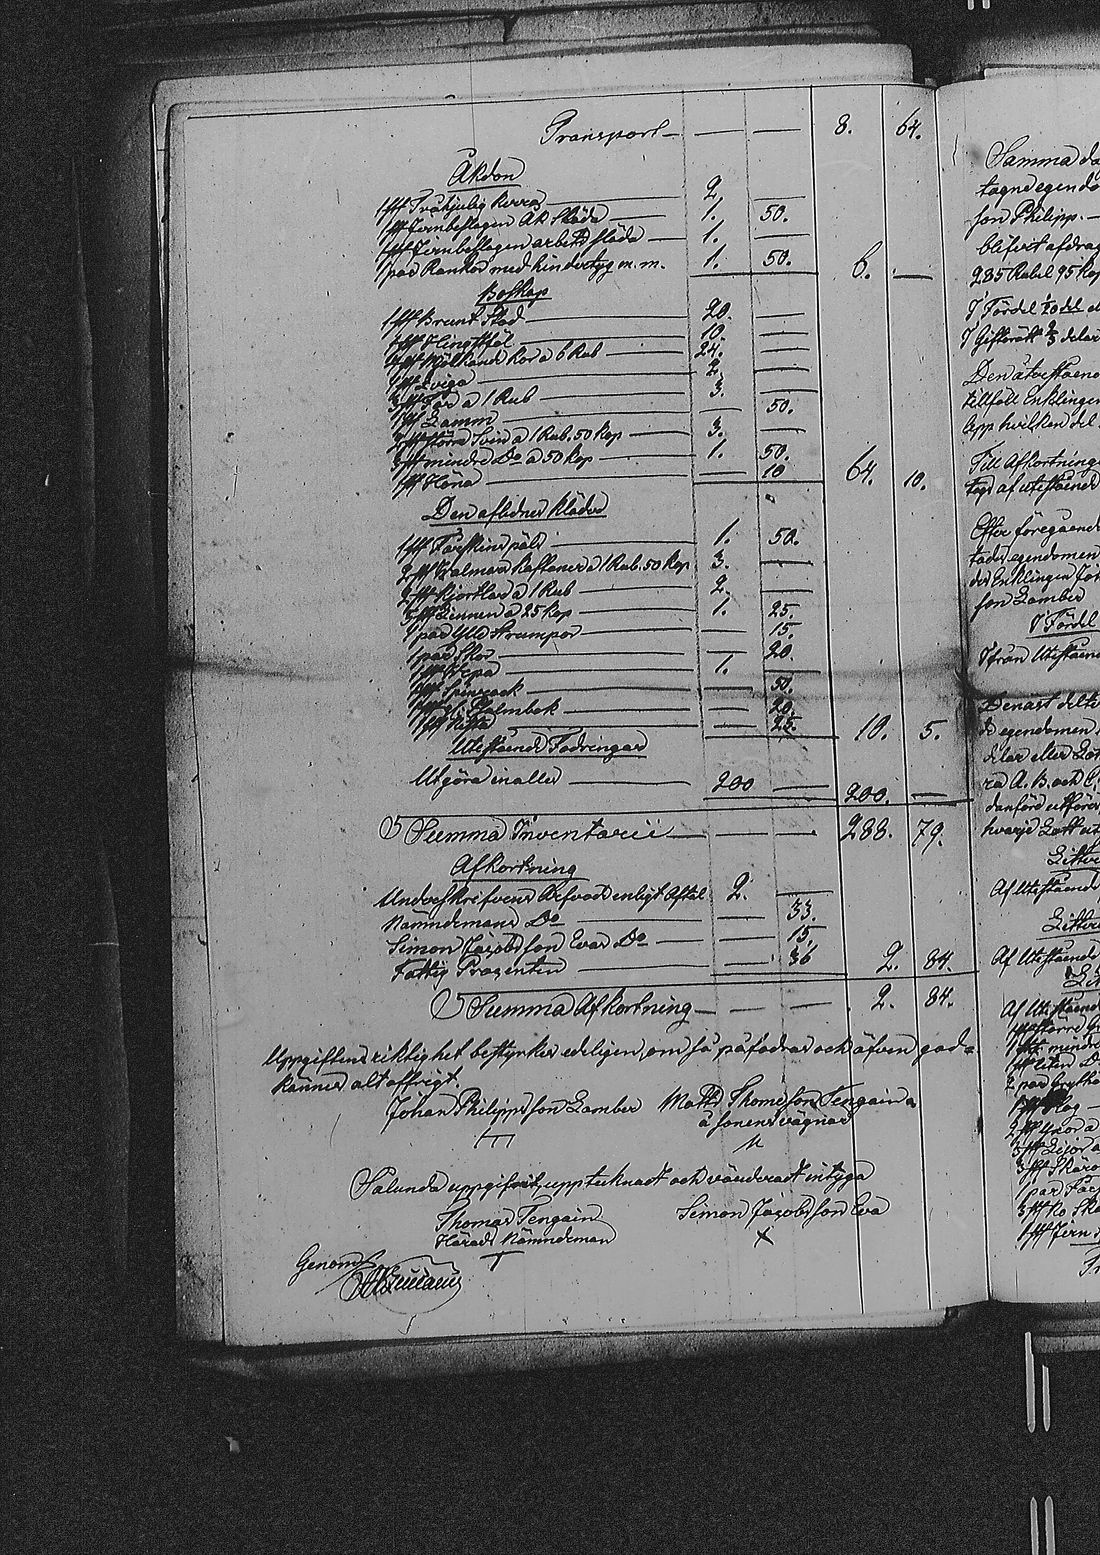 Transport — — — 8. 64.
Åkdon
1 st Tvåhjulig kerra — 2. —
1 st Jernbeslagen Åk Släda — 1. 50.
1 st Jernbeslagen arbets släda — 1. —
1 par Rankor med hindertyg m.m. 1. 50. 6. —
Boskap
1 st Brunt Stod — 20. —
1 st Hingstföl — 10. —
4 st Mjölkande Kor a 6 Rub — 24. —
1 st Qviga — 2. —
3 st Får a 1 Rub — 3. —
1 st Lamm — — 50.
2 st större Svin a 1 Rub. 50 Kop — 3. —
3 st mindre Do a 50 Kop — 1. 50.
1 st Höna — — 10 64. 10.
Den aflidnes kläder
1 st Fårskins päls — 1. 50.
2 st Valmars Kaftaner a 1 Rub. 50 Kop 3. —
2 st Kjortlar a 1 Rub — 2. —
5 st Linnen a 25 Kop — 1. 25.
1 par Ylle Strumpor — — 15.
1 par Skor — — 20.
1 st — 1. —
1 st — — 50.
1 st Psalmbok — — 20.
1 st Kista — — 25. 10. 5.
Utestående Fodringar
Utgöra in alles — 200 — 200. —
Summa Inventarii — — — 288. 79.
Afkortning
Underskrifvens Arfvode enligt Aftal 2. —
Nämndemans Do — — 33.
Simon Jacobsson Evas Do — — 15.
Fattig Procenten — — 36 2. 84.
Summa Afkortning — — — 2. 84.
Uppgiftens riktighet bestyrkes edeligen, om så påfodras och äfven god=
kännes alt offrigt.
Johan Philippsson Lamber Matts Thomesson Tengain
å sonens vägnar
Salunda uppgifvit, upptecknadt och värderadt intyga
Thomas Tengain Simon Jacobsson Eva
Härads Nämndeman X
Genom
Samma da
tagne egendo
son Philipp. —
blifvit afdrag
285 Rubel 95 Kop
I Fördel 1/20 del
I Giftorätt 2/3 delar
Den återståend
tillföll Enklingen
hvilken del
Till Afkortning
tags af utestående
Efter föregående
tades egendomen
des Enklingen Joh
son Lamber
I Fördel
Ifrån Utestående
Denast delte
egendomen
delar eller Lott
ra A. B. och C.
danförd utförd
hvarje Lott
Littera
Af Utestående
Littera
Af Utestående
Af Utestående
1 st större
1 st mindre
1 st liten
2 par